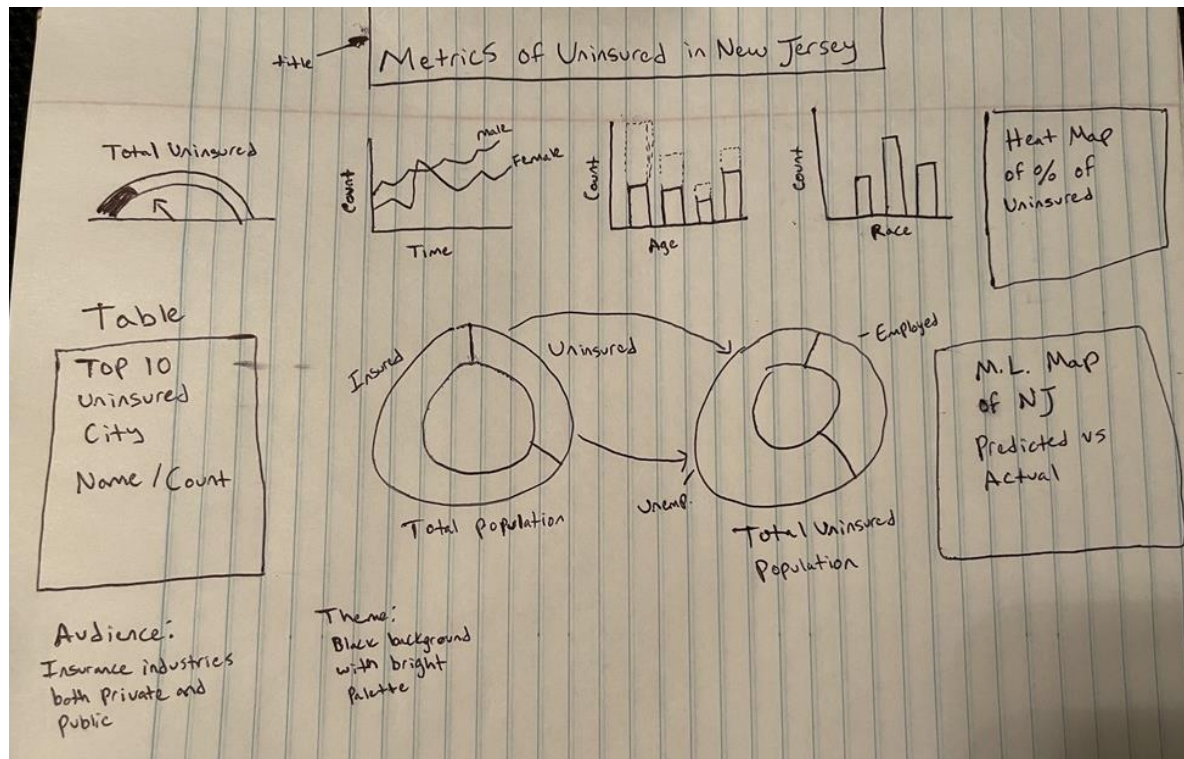 title
Metrics of Uninsured in New Jersey
Total Uninsured
Count
male
Female
Time
Count
Age
Count
Race
Heat Map
of % of
Uninsured
Table
Top 10
Uninsured
City
Name / Count
Insured
Uninsured
Total Population
Employed
Unemp.
Total Uninsured
Population
M.L. Map
of NJ
Predicted vs
Actual
Audience:
Insurance industries
both Private and
Public
Theme:
Black background
with bright
Palette